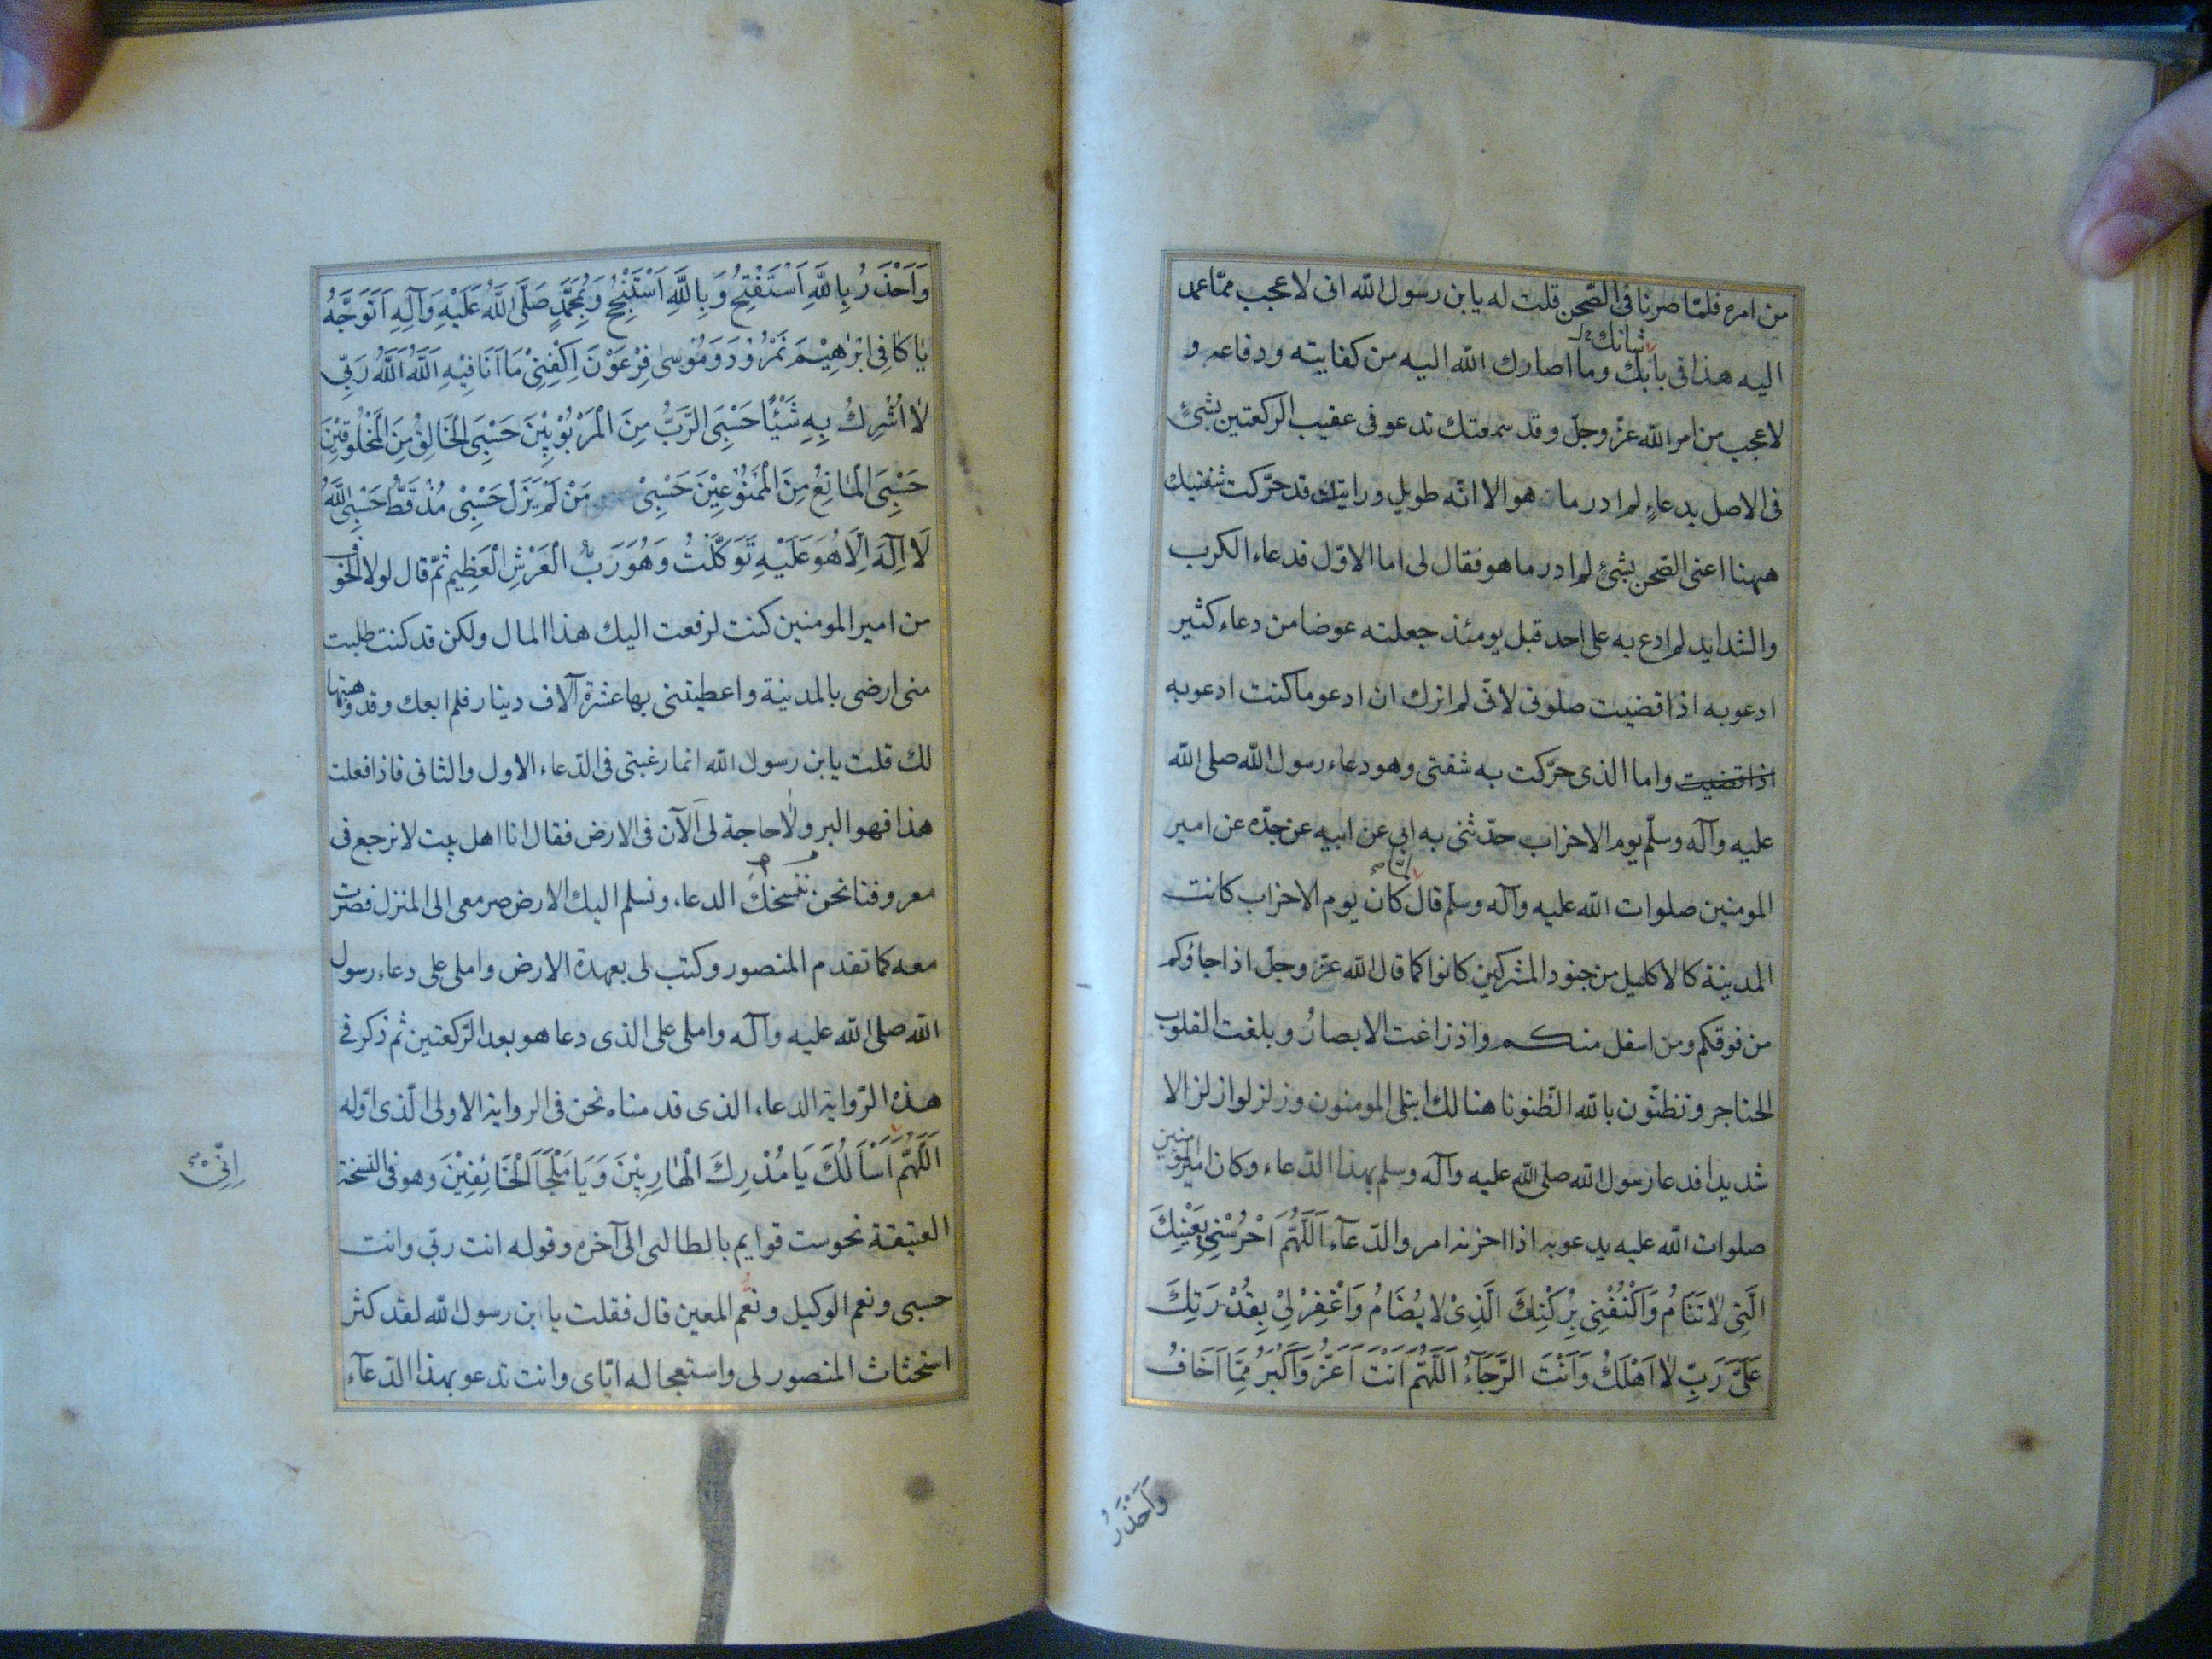 من امره فلمّا صرنا فى الصّحن قلت له يابن رسول الله انى لاعجب ممّا عمد
شانك
اليه هذا فى بابك وما اصارك الله اليه من كفايته ودفاعه و
لاعجب من امر الله عزّ وجلّ وقد سمعتك تدعو فى عقيب الركعتين بشئٍ
فى الاصل بدعاءٍ لم ادر ما هو الا انّه طويل ورايتك قد حرّكت شفتيك
ههنا اعنى الصّحن بشئٍ لم ادر ما هو فقال لى اما الاوّل فدعاء الكرب
والشدايد لم ادع به على احد قبل يومئذ جعلته عوضا من دعاء كثير
ادعو به اذا قضيت صلوتى لانّى لم اترك ان ادعو ما كنت ادعو به
اذا قضيت واما الذى حرّكت به شفتى وهو دعاء رسول الله صلى الله
عليه وآله وسلّم يوم الاحزاب حدّثنى به ابى عن ابيه عن جدّه عن امير
لمّا
المومنين صلوات الله عليه وآله وسلّم قال كان يوم الاحزاب كانت
المدينة كالاكليل من جنود المشركين كانوا كما قال الله عزّ وجلّ اذ اجاؤكم
من فوقكم ومن اسفل منكم واذ زاغت الابصارُ وبلغت القلوب
الحناجر وتظنّون بالله الظّنونا هنالك ابتلى المومنون وزلزلوا زلزالا
شديدا فدعا رسول الله صلى الله عليه وآله وسلم بهذا الدّعاء وكان اميرالمؤمنين
صلوات الله عليه يدعو به اذا احزنه امر والدّعآء اَللّٰهُمَّ احْرُسْنِى بِعَيْنِكَ
الَّتِى لاٰ تَنَامُ وَاكْنُفْنِى بِرُكْنِكَ الَّذِىْ لا يُضَامُ وَاغْفِرْ لِىْ بِقُدْرَتِكَ
عَلَىَّ رَبِّ لاٰ اَهْلَكُ وَاَنْتَ الرَّجَآءُ اَللّٰهُمَّ اَنْتَ اَعَزُّ وَاَكْبَرُ مِمَّا اَخَافُ
وَاَحْذَرُ
وَاَحْذَرُ بِاللّٰهِ اَسْتَفْتِحُ وَبِاللّٰهِ اَسْتَنْجِحُ وَبِمُحَمَّدٍ صَلَّى اللّٰهُ عَلَيْهِ وَآلِهِ اَتَوَجَّهُ
يٰا كٰافِى اِبْرٰهِيْمَ نَمْرُوْدَ وَمُوْسىٰ فِرْعَوْنَ اِكْفِنِىْ مَا اَنَا فِيْهِ اَللّٰهُ اَللّٰهُ رَبِّى
لٰا اُشْرِكُ بِهِ شَيْئًا حَسْبِىَ الرَّبُّ مِنَ الْمَرْبُوْبِيْنَ حَسْبِىَ الْخَالِقُ مِنَ الْمَخْلُوْقِيْنَ
حَسْبِىَ الْمٰانِعُ مِنَ الْمَمْنُوْعِيْنَ حَسْبِىْ مَنْ لَمْ يَزَلْ حَسْبِىْ مُذْ قَطُّ حَسْبِىَ اللّٰهُ
لَا اِلٰهَ اِلَّا هُوَ عَلَيْهِ تَوَكَّلْتُ وَهُوَ رَبُّ الْعَرْشِ الْعَظِيْمِ ثمّ قال لولا الخوف
من امير المومنين كنت لرفعت اليك هذا المال ولكن قد كنت طلبت
منى ارضى بالمدينة واعطيتنى بها عشرة آلاف دينار فلم ابعك وقد وهبتها
لك قلت يابن رسول الله انما رغبتى فى الدّعاء الاول والثانى فاذا فعلت
هذا فهو البر ولاٰ حاجة لى اَلآن فى الارض فقال انا اهل بيت لا نرجع فى
معروفنا نحن ننسخك الدعاء ونسلم اليك الارض صر معى الى المنزل فصرت
معه كما تقدم المنصور وكتب لى بعهدة الارض واملى على دعاء رسول
الله صلى الله عليه وآله واملى على الذى دعا هو بعد الرّكعتين ثم ذكر فى
هذه الرّواية الدعاء الذى قدمناه نحن فى الرواية الاولى الّذى اوّله
اِنِّىْ
اَللّٰهُمَّ اَسْاَلُكَ يَا مُدْرِكَ الْهٰارِبِيْنَ وَيَا مَلْجَاَ الْخَائِفِيْنَ وهو فى النسخة
العتيقة نحوست قوايم بالطالبى الى آخره وقوله انت ربى وانت
حسبى ونعم الوكيل ونعم المعين قال فقلت يا ابن رسول الله لقد كثر
استحثاث المنصور لى واستعجاله ايّاى وانت تدعو بهذا الدّعآء